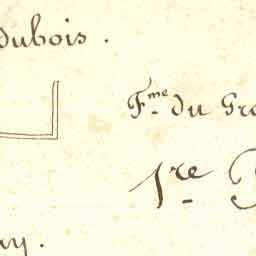 dubois.
Fme du Gro
1re
ay.